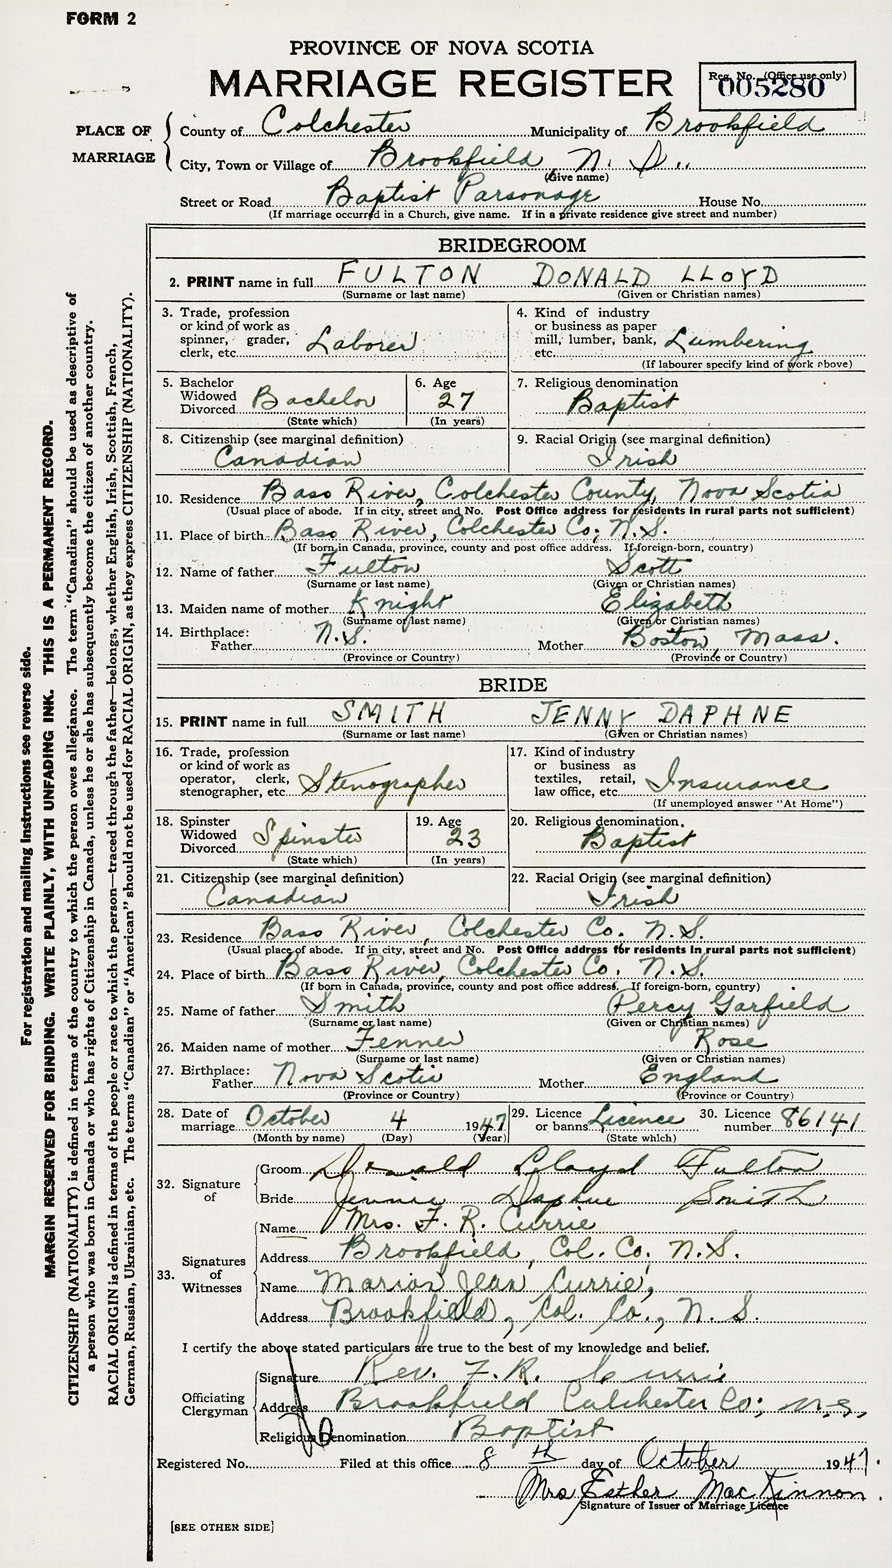 FORM 2
PROVINCE OF NOVA SCOTIA
MARRIAGE REGISTER
Reg. No. (Office use only)
005280
PLACE OF MARRIAGE
County of Colchester Municipality of Brookfield
City, Town or Village of Brookfield, N. S.
(Give name)
Street or Road Baptist Parsonage House No.
(If marriage occurred in a Church, give name. If in a private residence give street and number)
BRIDEGROOM
2. PRINT name in full FULTON DONALD LLOYD
(Surname or last name) (Given or Christian names)
3. Trade, profession or kind of work as spinner, grader, clerk, etc. Laborer
4. Kind of industry or business as paper mill, lumber, bank, etc. Lumbering
(If labourer specify kind of work above)
5. Bachelor Widowed Divorced Bachelor
(State which)
6. Age 27
(In years)
7. Religious denomination Baptist
8. Citizenship (see marginal definition) Canadian
9. Racial Origin (see marginal definition) Irish
10. Residence Bass River, Colchester County, Nova Scotia
(Usual place of abode. If in city, street and No. Post Office address for residents in rural parts not sufficient)
11. Place of birth Bass River, Colchester Co; N.S.
(If born in Canada, province, county and post office address. If foreign-born, country)
12. Name of father Fulton Scott
(Surname or last name) (Given or Christian names)
13. Maiden name of mother Knight Elizabeth
(Surname or last name) (Given or Christian names)
14. Birthplace: Father N.S. Mother Boston, Mass.
(Province or Country) (Province or Country)
BRIDE
15. PRINT name in full SMITH JENNY DAPHNE
(Surname or last name) (Given or Christian names)
16. Trade, profession or kind of work as operator, clerk, stenographer, etc. Stenographer
17. Kind of industry or business as textiles, retail, law office, etc. Insurance
(If unemployed answer "At Home")
18. Spinster Widowed Divorced Spinster
(State which)
19. Age 23
(In years)
20. Religious denomination. Baptist
21. Citizenship (see marginal definition) Canadian
22. Racial Origin (see marginal definition) Irish
23. Residence Bass River, Colchester Co. N.S.
(Usual place of abode. If in city, street and No. Post Office address for residents in rural parts not sufficient)
24. Place of birth Bass River, Colchester Co. N.S.
(If born in Canada, province, county and post office address. If foreign-born, country)
25. Name of father Smith Percy Garfield
(Surname or last name) (Given or Christian names)
26. Maiden name of mother Fenner Rose
(Surname or last name) (Given or Christian names)
27. Birthplace: Father Nova Scotia Mother England
(Province or Country) (Province or Country)
28. Date of marriage October 4 1947
(Month by name) (Day) (Year)
29. Licence or banns Licence
(State which)
30. Licence number 86141
32. Signature of
Groom Donald Lloyd Fulton
Bride Jennie Daphne Smith
33. Signatures of Witnesses
Name Mrs. F. R. Currie
Address Brookfield, Col. Co. N.S.
Name Marion Jean Currie,
Address Brookfield, Col. Co., N. S.
I certify the above stated particulars are true to the best of my knowledge and belief.
Officiating Clergyman
Signature Rev. F. R. Currie
Address Brookfield Colchester Co; N.S,
Religious Denomination Baptist
Registered No. Filed at this office 8 th day of October 1947.
Mrs Esther MacKinnon
Signature of Issuer of Marriage Licence
[SEE OTHER SIDE]
For registration and mailing instructions see reverse side.
MARGIN RESERVED FOR BINDING. WRITE PLAINLY, WITH UNFADING INK. THIS IS A PERMANENT RECORD.
CITIZENSHIP (NATIONALITY) is defined in terms of the country to which the person owes allegiance. The term "Canadian" should be used as descriptive of
a person who was born in Canada or who has rights of Citizenship in Canada, unless he or she has subsequently become the citizen of another country.
RACIAL ORIGIN is defined in terms of the people or race to which the person—traced through the father—belongs, whether English, Irish, Scottish, French,
German, Russian, Ukrainian, etc. The terms "Canadian" or "American" should not be used for RACIAL ORIGIN, as they express CITIZENSHIP (NATIONALITY).